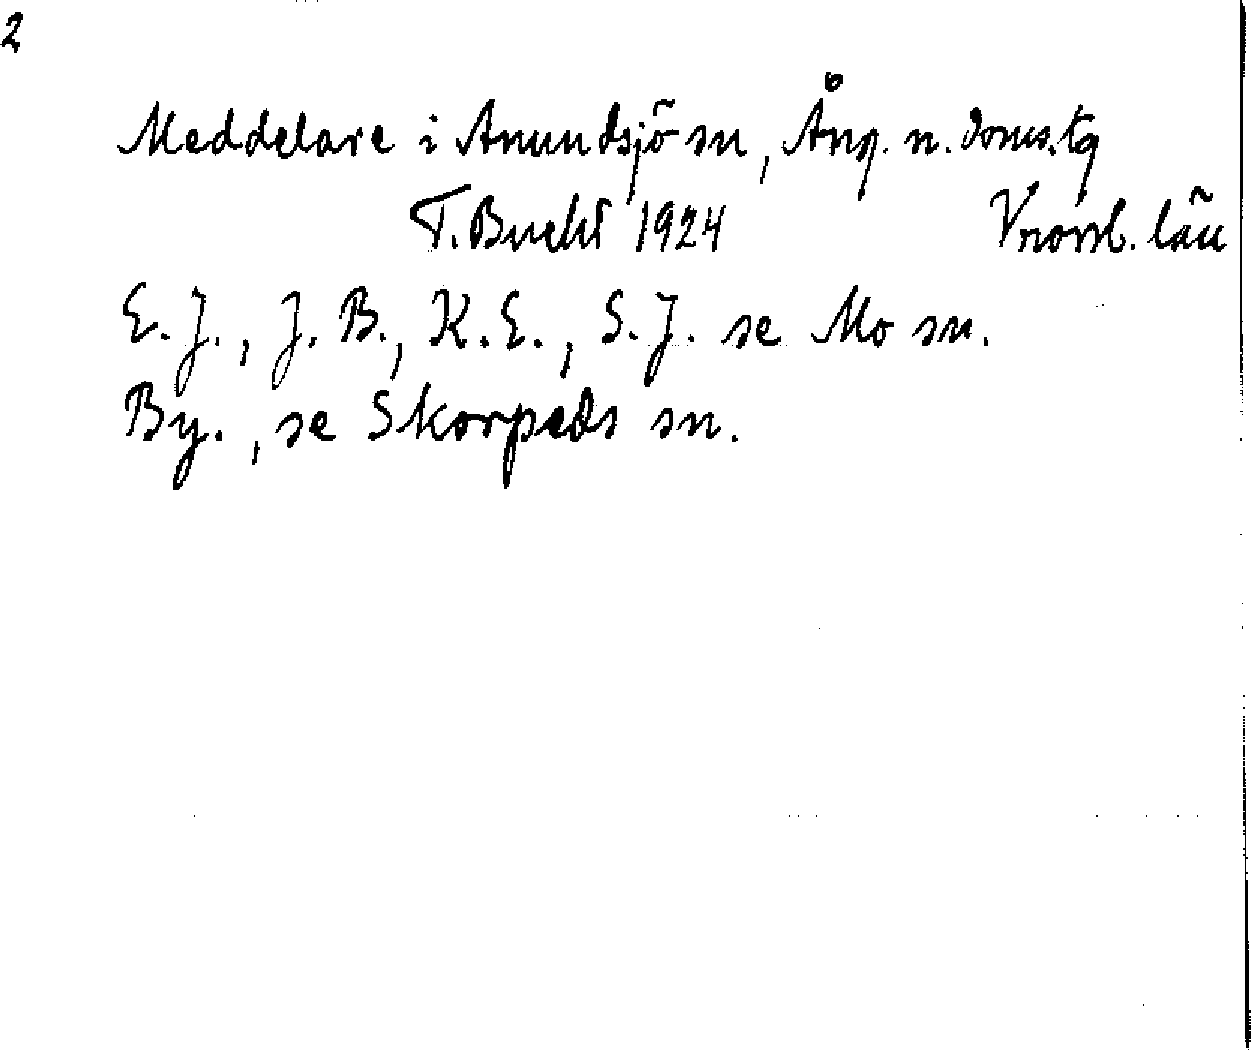 2
Meddelare i Anundsjö sn, Ång. n. doms.tg
T. Bucht 1924 Vnorrl. län
E. J., J. B., K. E., S. J. se Mo sn.
By., se Skorpeds sn.